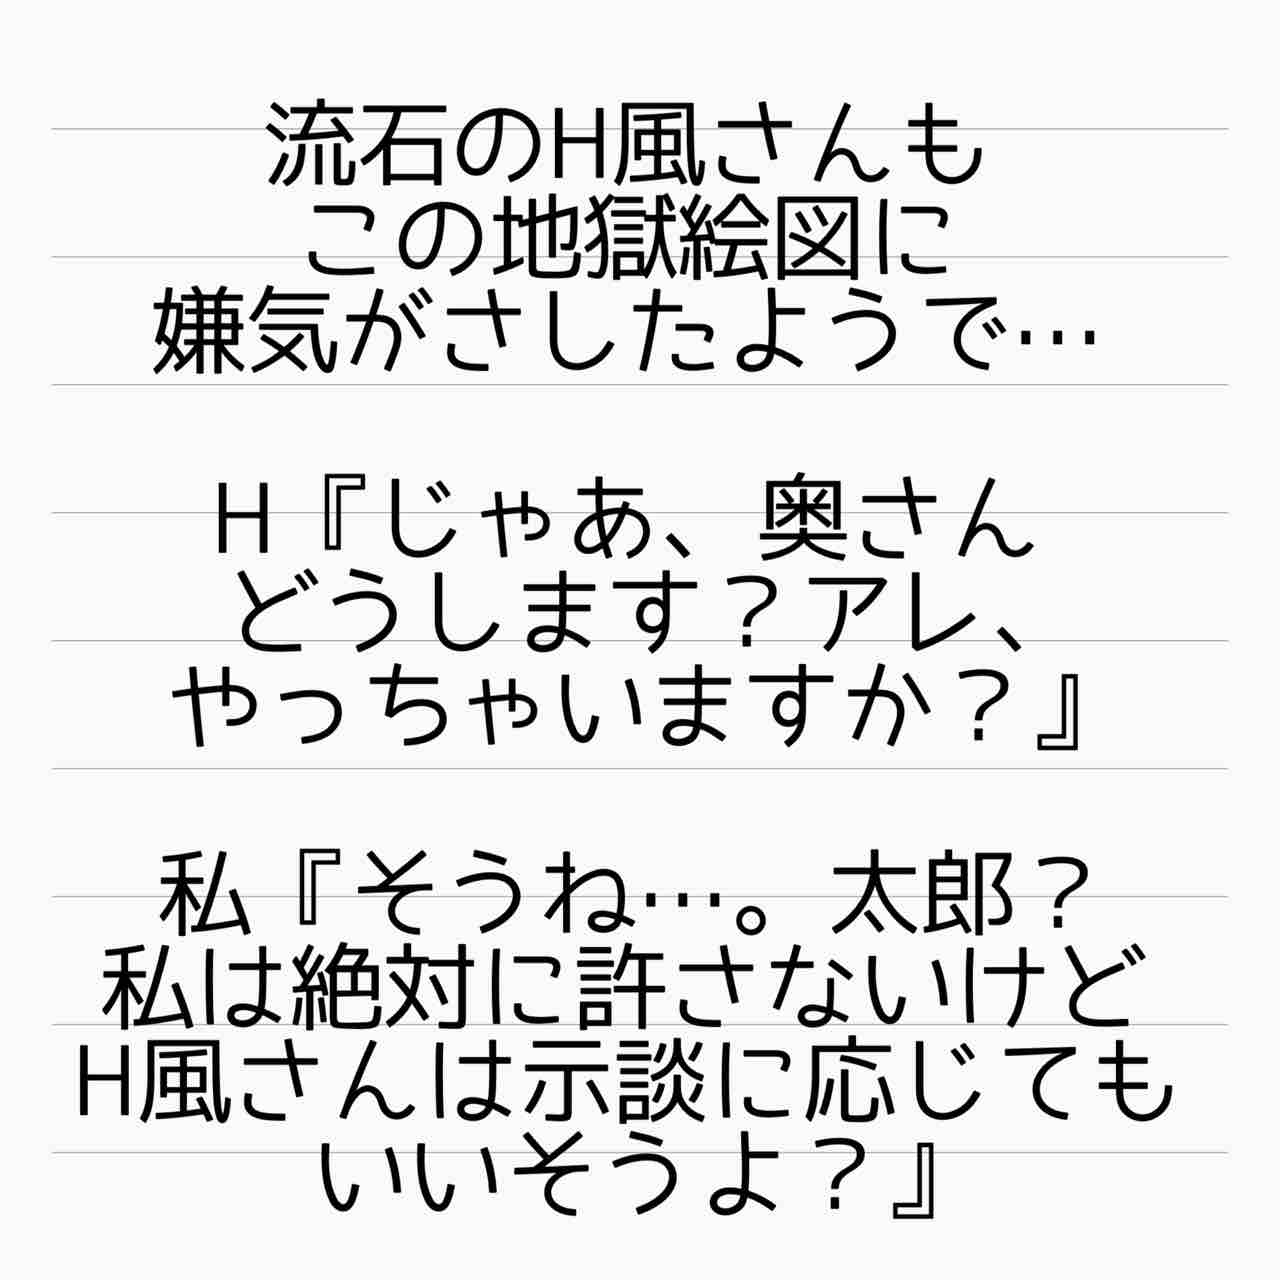 流石のH風さんも
この地獄絵図に
嫌気がさしたようで…
H『じゃあ、奥さん
どうします？アレ、
やっちゃいますか？』
私『そうね…。太郎？
私は絶対に許さないけど
H風さんは示談に応じても
いいそうよ？』